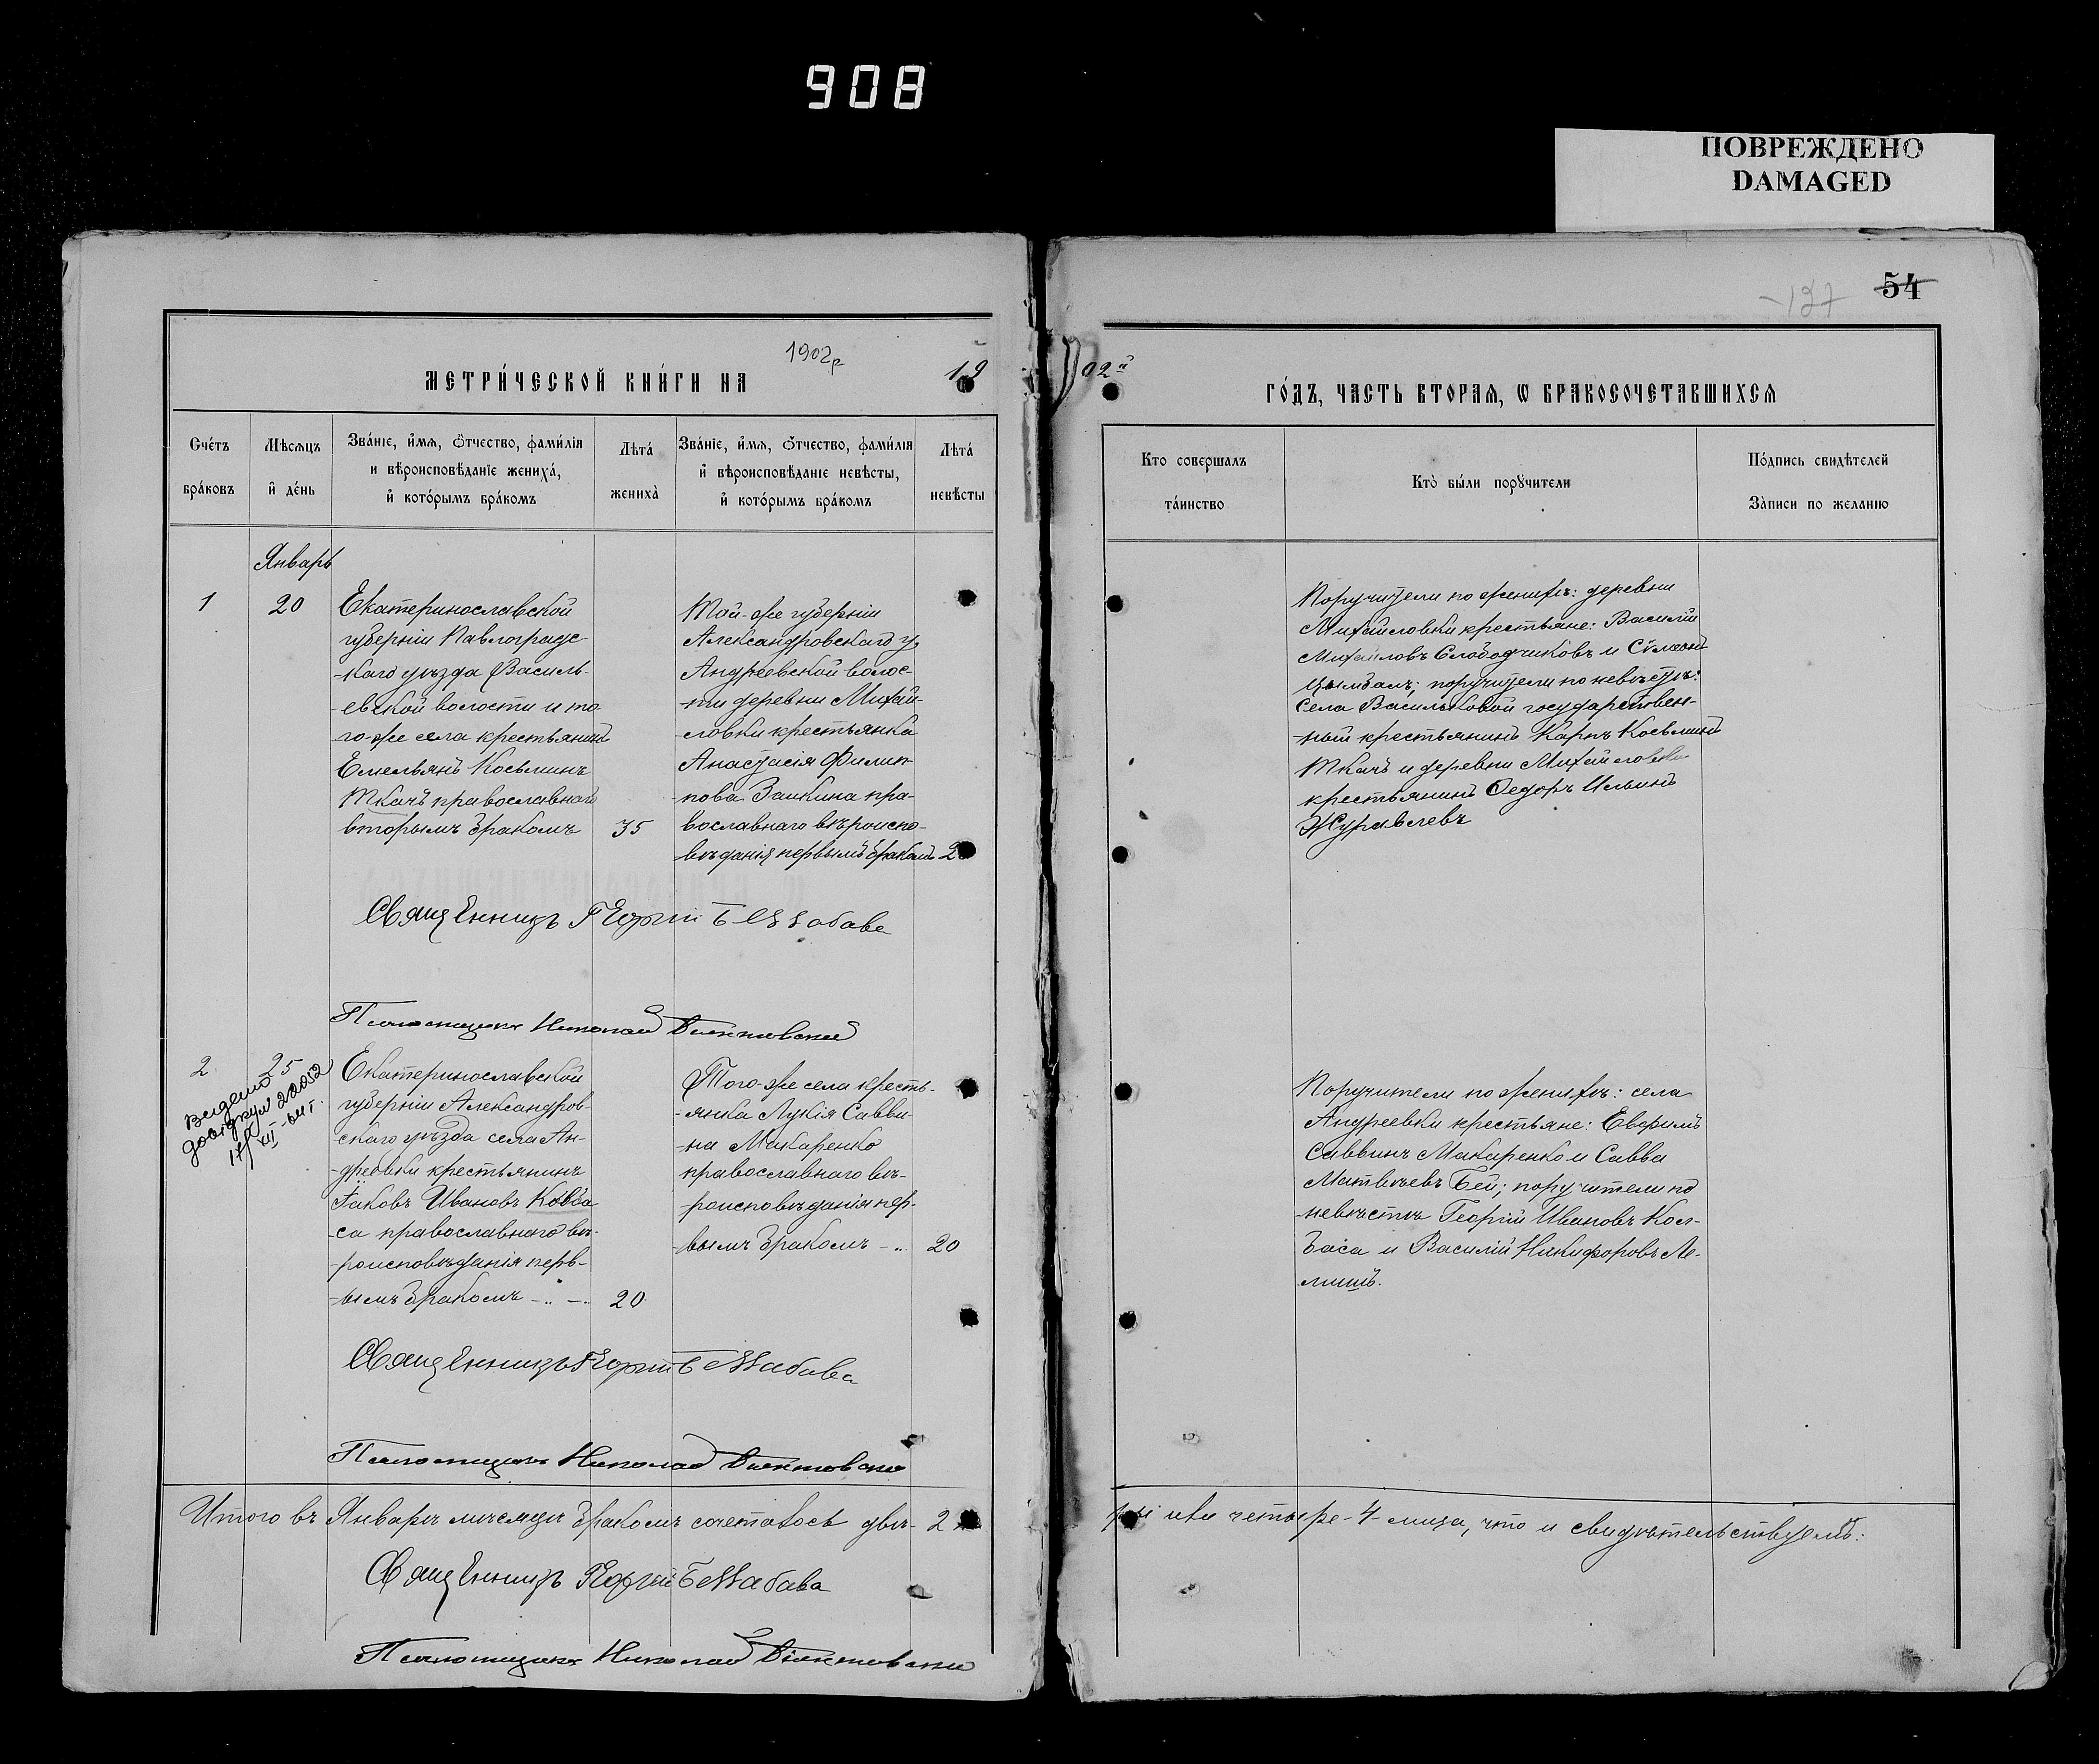 908
ПОВРЕЖДЕНО
DAMAGED
54
-127
1902р
МЕТРИ́ЧЕСКОЙ КНИ́ГИ НА 19
02й
ГО́ДЪ, ЧАСТЬ ВТОРАѦ, Ѡ БРАКОСОЧЕТАВШИХСѦ
Сче́тъ бра́ковъ
Мѣсяцъ и де́нь
Зва́нїе, и́мѧ, о́тчество, фами́лїя
и вѣроисповѣданїе жениха́,
и кото́рымъ бра́комъ
Лѣта́ жениха̀
Зва́нїе, и́мѧ, о́тчество, фами́лїя
и вѣроисповѣданїе невѣсты,
и кото́рымъ бра́комъ
Лѣта́ невѣсты
Кто совершалъ
та́инство
Кто̀ бы́ли порꙋчители
По́дпись свидѣтелей
За̀писи по желанїю
Январь
1
20
Екатеринославской
губернiи Павлоградс-
-каго уѣзда Василь-
-евской волости и то
-го-же села крестьянинъ
Емельянъ Косьминъ
Ткачъ православнаго
вторымъ бракомъ
35
Той-же губернiи
Александровскаго у.
Андреевской волос-
-ти деревни Михай-
-ловки крестьянка
Анастасiя Филип-
-пова Заикина пра-
вославнаго вѣроиспо-
-вѣданiя первымъ бракомъ 2
Поручители по женихѣ: деревни
Михайловки крестьяне: Василiй
Михайловъ Слободчиковъ и Сѵмеонъ
Цымбалъ; поручители по невѣстѣ:
села Васильковой государствен-
-ный крестьянинъ Карпъ Косьминъ
Ткачъ и деревни Михайловки
крестьянинъ Ѳедоръ Ильинъ
Журавлевъ
Священникъ Георгiй Беззабава
Псаломщикъ Николай
2
25
Видено
довідкум 22052
Екатеринославской
губернiи Александров-
-скаго уѣзда села Ан-
-дреевки крестьянинъ
Iаковъ Ивановъ Ковба
-са православнаго вѣ-
-роисповѣданiя перв-
-вымъ бракомъ -..-..
20
Того-же села кресть-
-янка Лукiя Савви-
-на Макаренко
православнаго вѣ-
-роисповѣданiя пер-
-вымъ бракомъ -..
20
Поручители по женихѣ: села
Андреевки крестьяне: Евфимъ
Саввинъ Макаренко и Савва
Матвѣевъ Бей; поручители по
невѣстѣ Георгiй Ивановъ Ков-
баса и Василiй Никифоровъ Ле-
мишъ.
Священникъ Георгiй Беззабава
Псаломщикъ Николай
Итого въ Январѣ месяцѣ бракомъ сочетавось двѣ- 2
или четыре-4-лица, что и свидѣтельствуемъ:
Священникъ Георгiй Беззабава
Псаломщикъ Николай